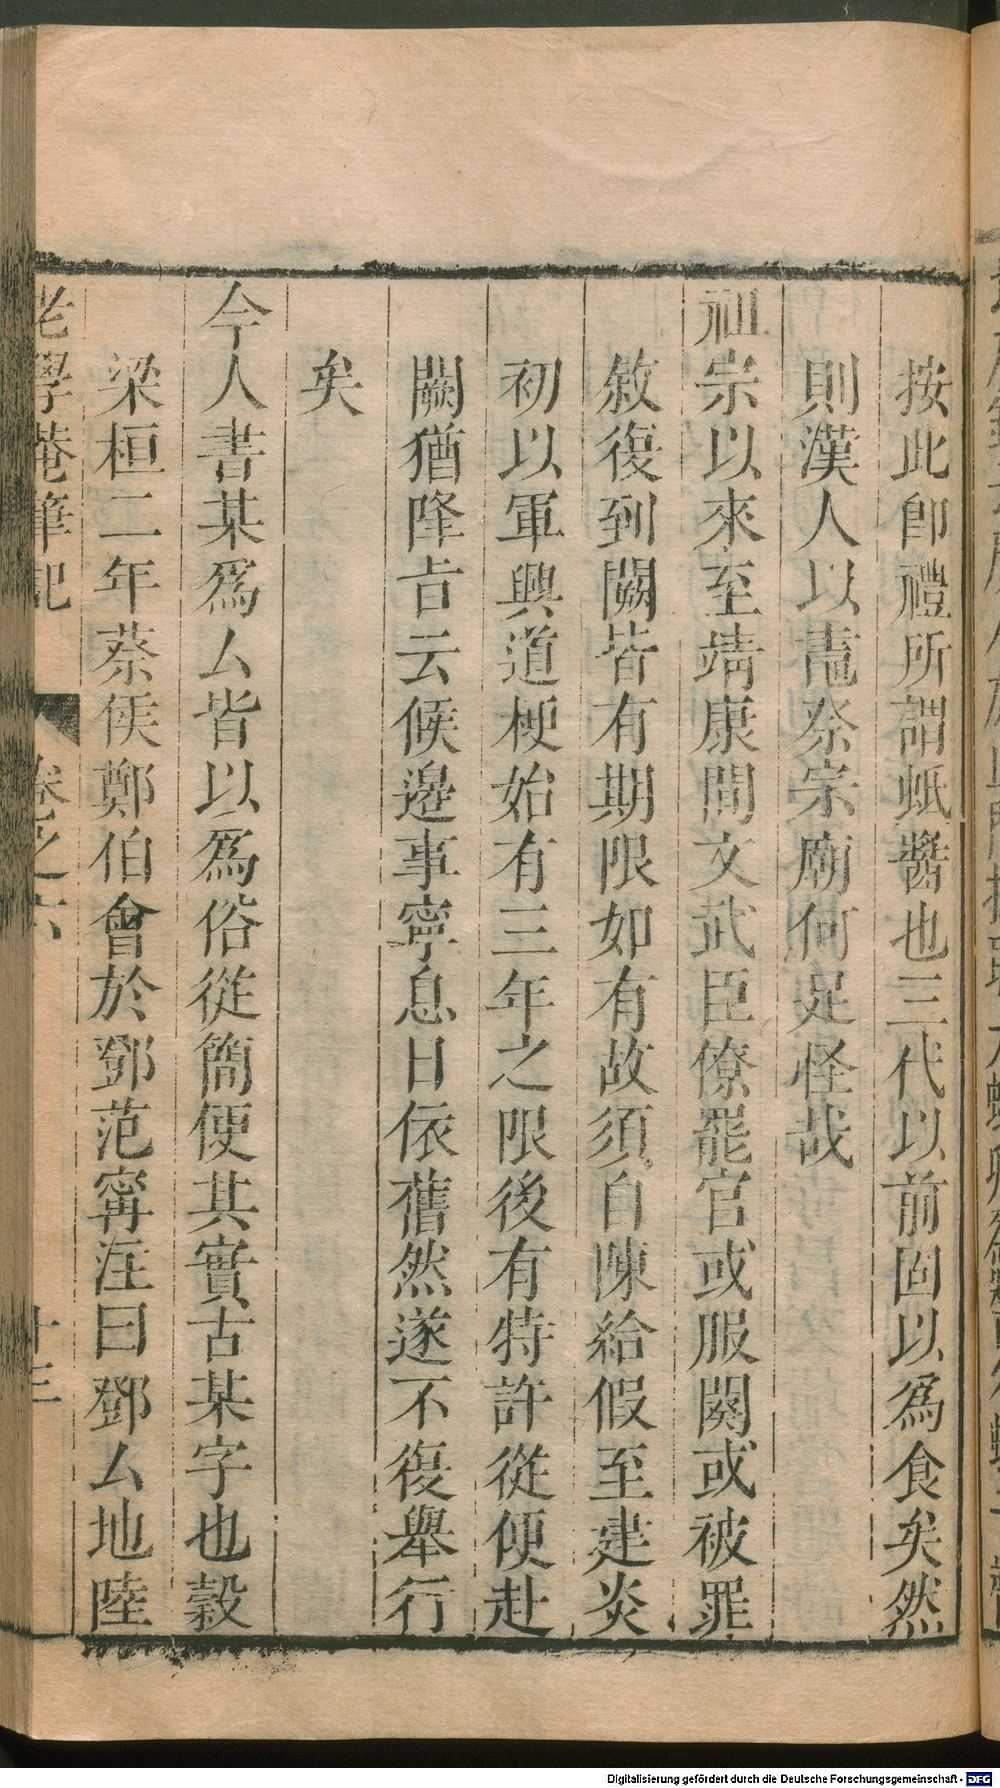 按此卽禮所謂蚳醬也三代以前固以爲食矣然
則漢人以鼃祭宗廟何足怪哉
祖宗以來至靖康間文武臣僚罷官或服闋或被罪
敘復到闕皆有期限如有故須自陳給假至建炎
初以軍興道梗始有三年之限後有特許從便赴
闕猶降旨云候邊事寧息日依舊然遂不復舉行
矣
今人書某爲厶皆以爲俗從簡便其實古某字也穀
梁桓二年蔡侯鄭伯會於鄧范甯注曰鄧厶地陸
老學菴筆記 卷之六 十三
Digitalisierung gefördert durch die Deutsche Forschungsgemeinschaft - DFG